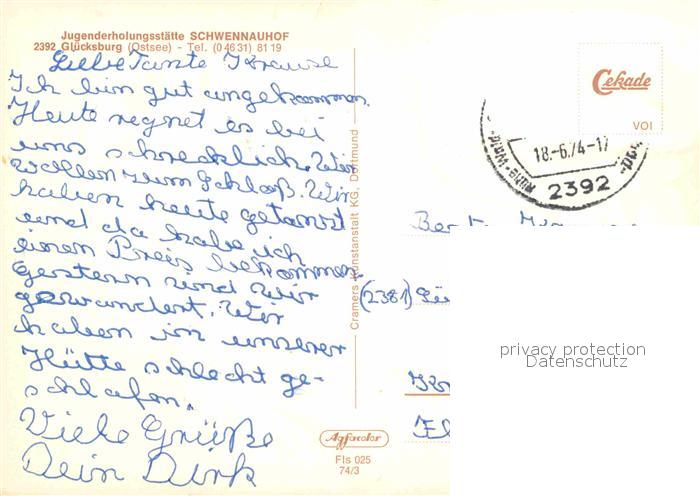 Jugenderholungsstätte SCHWENNAUHOF
2392 Glücksburg (Ostsee) - Tel. (0 46 31) 81 19
Liebe Tante Krause
Ich bin gut angekommen.
Heute regnet es bei
uns schrecklich. Wir
wollen zum Schloß. Wir
haben heute getanzt
und da habe ich
einen Preis bekommen.
Gestern sind wir
gewandert. Wir
haben in unserer
Hütte schlecht ge-
schlafen.
Viele Grüße
Dein Dirk
Cramers Kunstanstalt KG, Dortmund
Agfacolor
Fls 025
74/3
Cekade
VOI
18.-6.74-17
2392
(2381)
privacy protection
Datenschutz